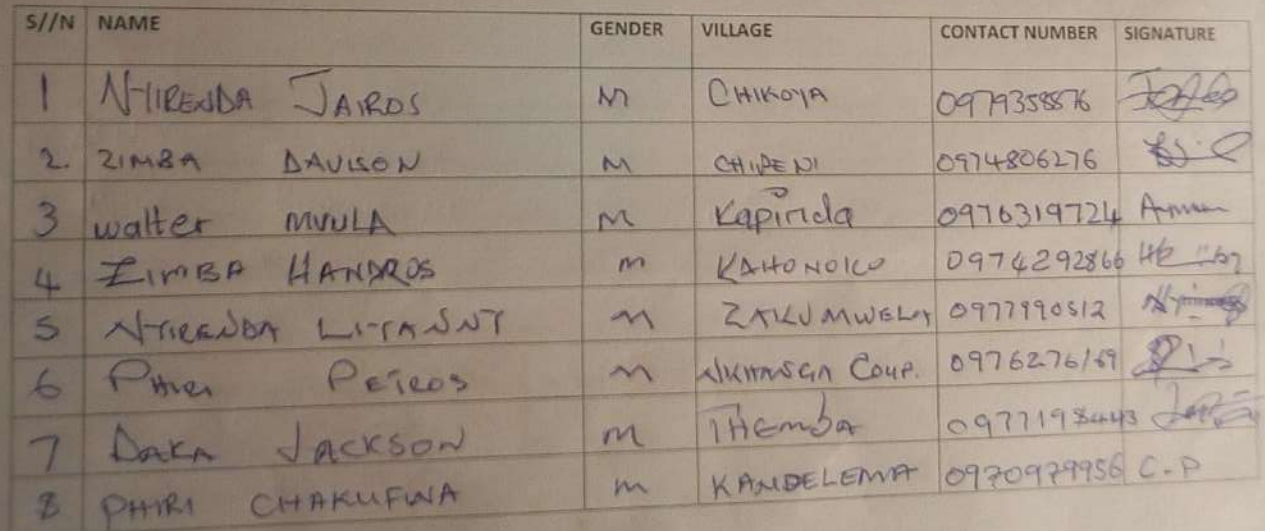 S//N NAME GENDER VILLAGE CONTACT NUMBER SIGNATURE
1 NTIRENDA JAIROS M CHIKOYA 0979358876
2. ZIMBA DAVISON M CHIPENI 0974806276
3 walter MVULA M Kapirida 0976319724
4 ZIMBA HANDROS m 0974292866
5 NTIRENDA M 0977990512
6 Phiri PETROS M 0976276169
7 DAKA JACKSON m THEMBA 0977198443
8 PHIRI CHAKUFWA m KANDELEMA 0970979956 C.P